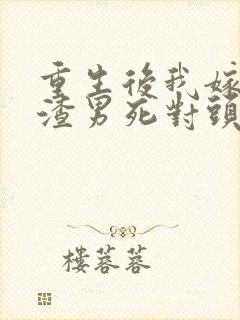 重生後我嫁
渣男死對頭
樓蓉蓉